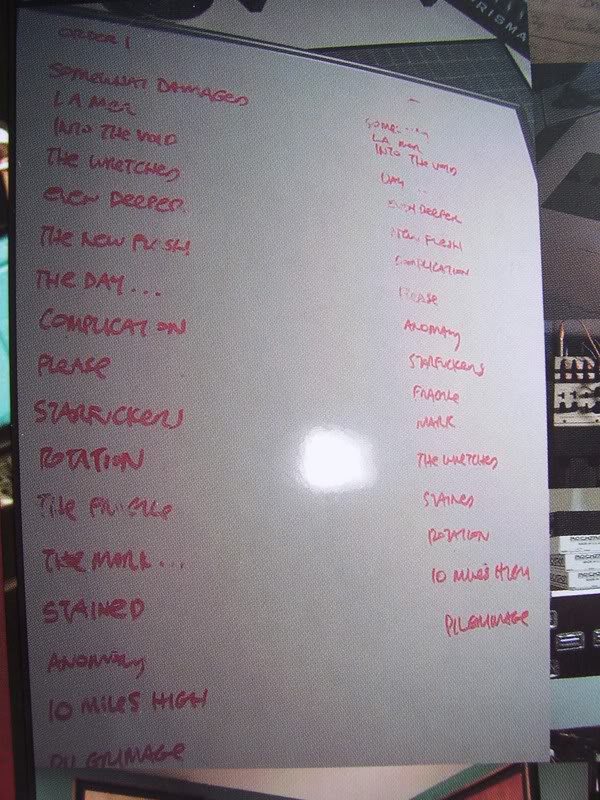 ORDER 1
SOMEWHAT DAMAGED
LA MER
INTO THE VOID
THE WRETCHED
EVEN DEEPER
THE NEW FLESH
THE DAY...
COMPLICATION
PLEASE
STARFUCKERS
ROTATION
THE FRAGILE
THE MARK...
STAINED
ANOMALY
10 MILES HIGH
PILGRIMAGE
LA MER
INTO THE VOID
DAY ..
EVEN DEEPER
NEW FLESH
COMPLICATION
PLEASE
ANOMALY
STARFUCKERS
FRAGILE
MARK
THE WRETCHED
STAINED
ROTATION
10 MILES HIGH
PILGRIMAGE